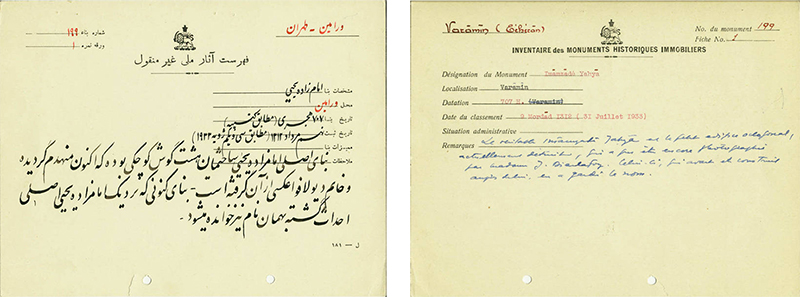 ورامین - طهران
شماره بناء ۱۹۹
ورقه نمره ۱
فهرست آثار ملی غیر منقول
مشخصات بنا امامزاده یحیی
محل ورامین
تاریخ بنا ۷۰۷ هجری (مطابق کتیبه)
تاریخ ثبت نهم مرداد ۱۳۱۲ (مطابق سی و یکم ژویه ۱۹۳۳)
ممیزات بنا
ملاحظات بنای اصلی امامزاده یحیی ساختمان هشت گوش کوچکی بوده که اکنون منهدم گردیده
و خانم دیولافوا عکسی از آن گرفته است - بنای کنونی که نزدیک امامزاده یحیی اصلی
احداث گشته بهمان نام نیز خوانده میشود -
ل — ۱۸۱
Varâmîn (Tihrân)
No. du monument 199
Fiche No. 1
INVENTAIRE des MONUMENTS HISTORIQUES IMMOBILIERS
Désignation du Monument Imamzadé Yahya
Localisation Varamin
Datation 707 H. (Waramin)
Date du classement 9 Mordad 1312 (31 Juillet 1933)
Situation administrative
Remarques Le véritable Imamzadé Yahya est le petit édifice octogonal,
actuellement détruit, qui a pu être encore photographié
par madame J. Dieulafoy. Celui-ci, qui avait été construit
auprès de lui, en a gardé le nom.